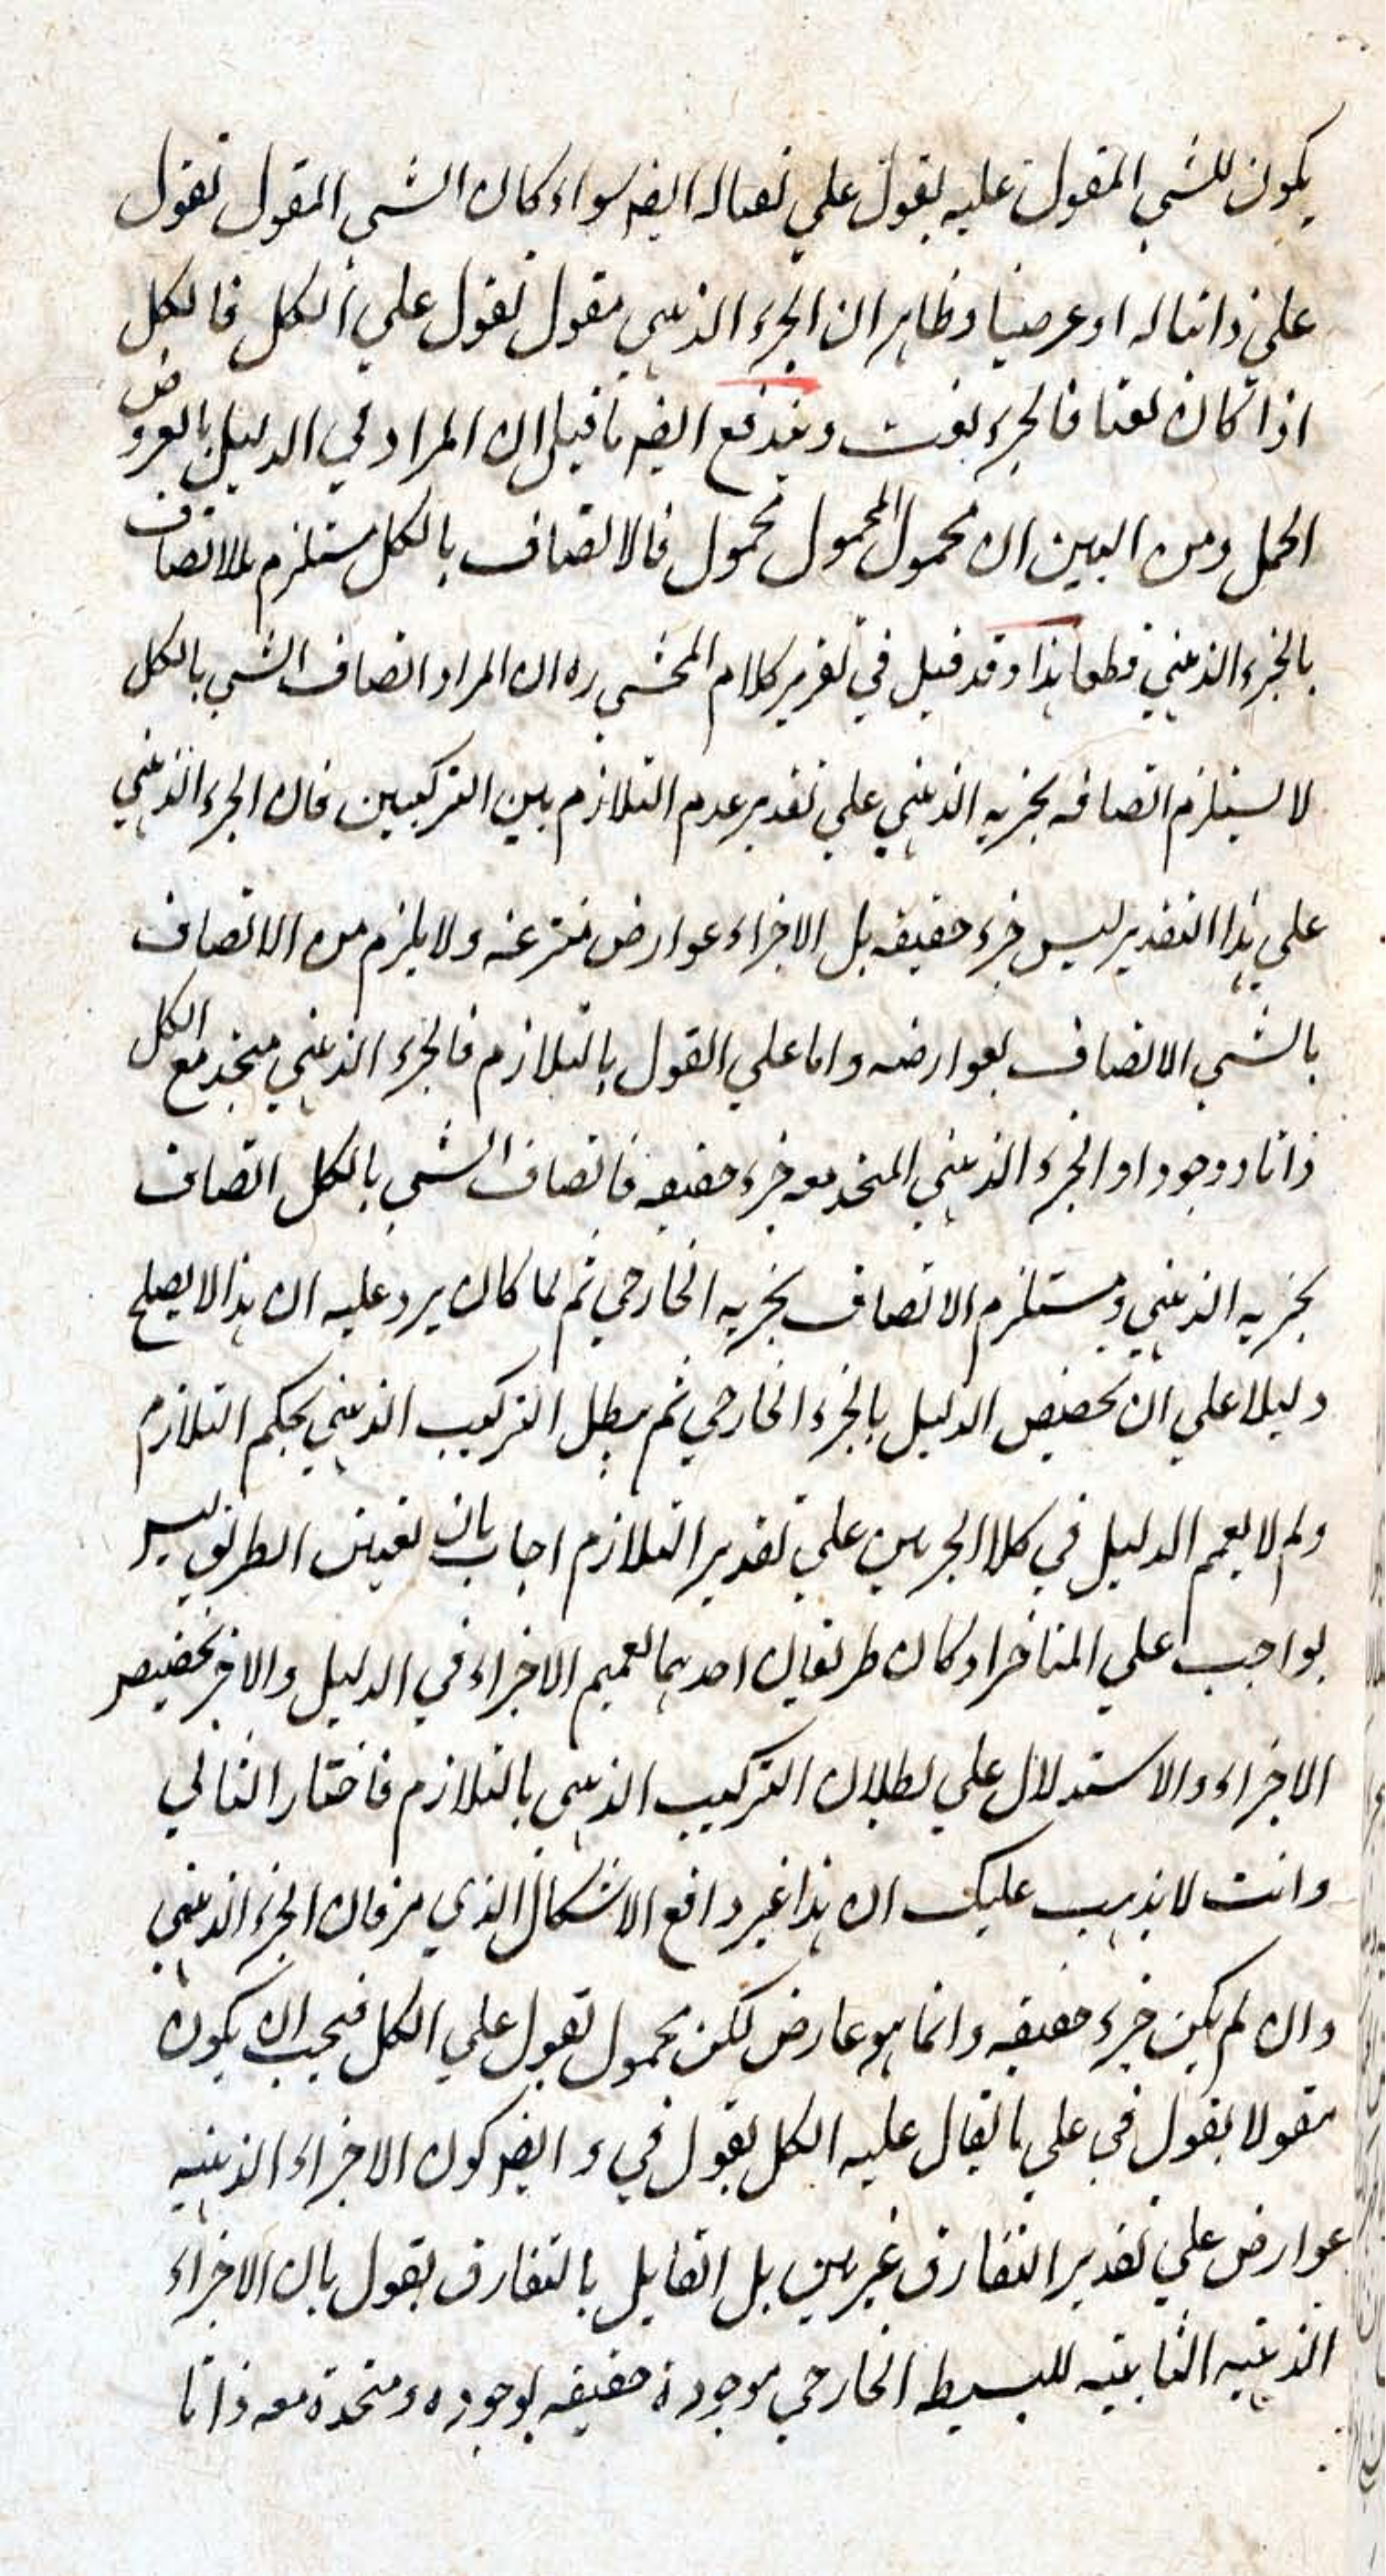 يكون للشي المقول عليه بقول على نعتا له ايضا سواء كان الشي المقول بقول
على ذاتيا له او عرضيا وظاهر ان الجزء الذهني مقول بقول على الكل فالكل
اذا كان نعتا فالجزء نعت ويندفع ايضا ما قيل ان المراد في الدليل بالعروض
الحمل ومن البين ان محمول المحمول محمول فالاتصاف بالكل مستلزم للاتصاف
بالجزء الذهني قطعا هذا وقد قيل في تقرير كلام المحشي ره ان المراد اتصاف الشي بالكل
لا يستلزم اتصافه بجزئه الذهني على تقدير عدم التلازم بين التركيبين فان الجزء الذهني
على هذا التقدير ليس جزء حقيقه بل الاجزاء عوارض منتزعه ولا يلزم من الاتصاف
بالشي الاتصاف بعوارضه واما على القول بالتلازم فالجزء الذهني متحد مع الكل
ذاتا ووجودا والجزء الذهني المتحد معه جزء حقيقه فاتصاف الشي بالكل اتصاف
بجزئه الذهني ومستلزم الاتصاف بجزئه الخارجي ثم لما كان يرد عليه ان هذا لا يصلح
دليلا على ان تخصيص الدليل بالجزء الخارجي ثم يبطل التركيب الذهني بحكم التلازم
ولم لا يعمم الدليل في كلا الجزئين على تقدير التلازم اجاب بان تعيين الطريق ليس
بواجب على المناظر اذ كان طريقان احدهما تعميم الاجزاء في الدليل والاخر تخصيص
الاجزاء والاستدلال على بطلان التركيب الذهني بالتلازم فاختار الثاني
وانت لا يذهب عليك ان هذا غير دافع الاشكال الذي مر فان الجزء الذهني
وان لم يكن جزء حقيقه وانما هو عارض لكن محمول بقول على الكل فيجب ان يكون
مقولا بقول في على ما يقال عليه الكل بقول في و ايضا كون الاجزاء الذهنيه
عوارض على تقدير التفارق غير بين بل القايل بالتفارق يقول بان الاجزاء
الذهنيه الثابتيه للبسيط الخارجي موجودة حقيقه بوجوده ومتحدة معه ذاتا